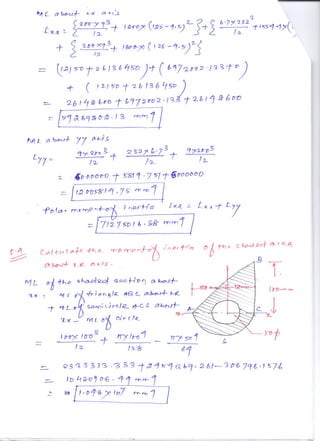 MI about xx axis
Ixx = { 200×9³/12 + 1800× (125-4.5)² } + { 6.7×232³/12 + 1554.4×(
+ { 200×9³/12 + 1800× (125-4.5)² }
= (12150 + 26136450) + (6972002.1330)
+ (12150 + 26136450)
= 26148600 + 6972002.133 + 26148600
= 59269202.13 mm⁴
MI about yy axis
Iyy = 9×200³/12 + 232×6.7³/12 + 9×200³/12
= 6000000 + 5814.751 + 6000000
= 12005814.75 mm⁴
Polar moment of inertia Izz = Ixx + Iyy
= 71275016.88 mm⁴
Calculate the moment of inertia of the shaded area
about xx axis.
MI of the shaded section about
xx = MI of triangle ABC about xx
+ MI of semicircle ACC about
xx - MI of circle
= 100× 100³/12 + π×100⁴/128 - π×50⁴/64
= 8333333.333 + 2454369.261 - 306796.1576
= 10480906.44 mm⁴
= 1.048 × 10⁷ mm⁴
B
100mm
A
C
50ф